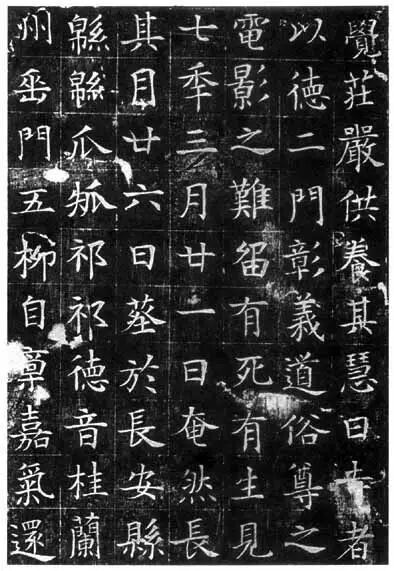 覺莊嚴供養其慧日者
以徳二門彰義道俗尊之
電影之難留有死有生見
七季三月廿一日奄然長
其月廿六日塟於長安縣
緜緜瓜瓞祁祁徳音桂蘭
州垂門五柳自章嘉氣還